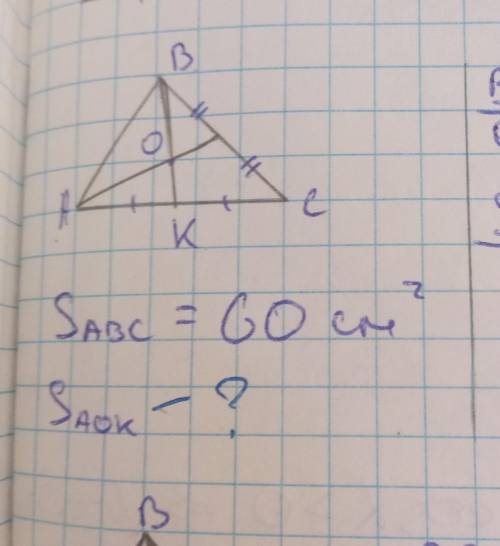 B
O
A
K
C
S_ABC = 60 см²
S_AOK - ?
B